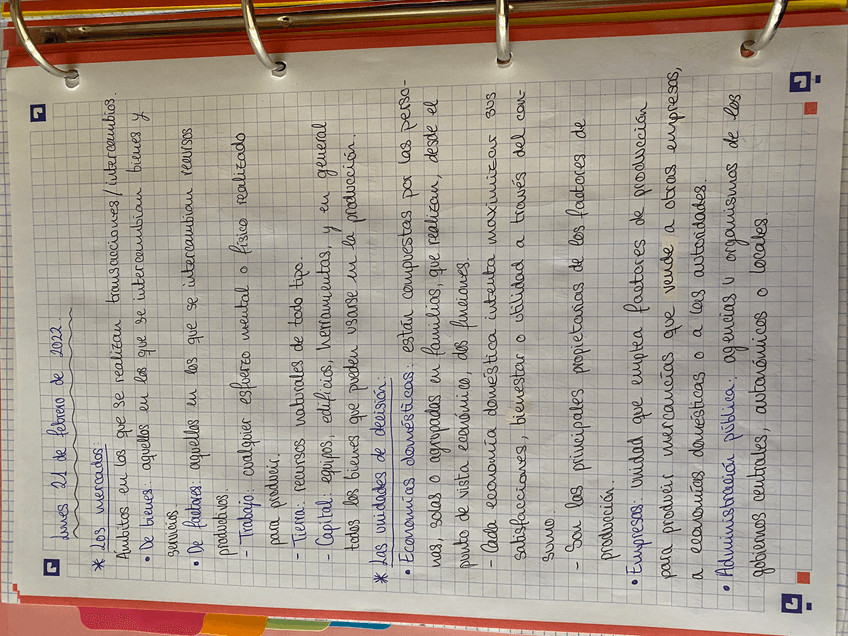 lunes 21 de febrero de 2022.
* Los mercados:
Ámbitos en los que se realizan transacciones/intercambios.
• De bienes: aquellos en los que se intercambian bienes y
servicios.
• De factores: aquellos en los que se intercambian recursos
productivos.
- Trabajo: cualquier esfuerzo mental o físico realizado
para producir.
- Tierra: recursos naturales de todo tipo.
- Capital: equipos, edificios, herramientas, y en general
todos los bienes que pueden usarse en la producción.
* Las unidades de decisión:
• Economías domésticas: están compuestas por las perso-
nas, solas o agrupadas en familias, que realizan, desde el
punto de vista económico, dos funciones.
- Cada economía doméstica intenta maximizar sus
satisfacciones, bienestar o utilidad a través del con-
sumo.
- Son las principales propietarias de los factores de
producción.
• Empresas: unidad que emplea factores de producción
para producir mercancías que vende a otras empresas,
a economías domésticas o a las autoridades.
• Administración pública: agencias u organismos de los
gobiernos centrales, autonómicos o locales